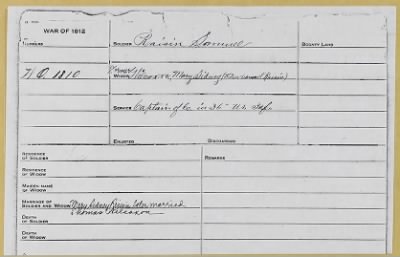 WAR OF 1812
NUMBERS
SOLDIER Raisin Samuel
BOUNTY LAND
W O. 1810
Former
WIDOW Mary Sidney
SERVICE Captain of Co in 36" U.S. Inf.
ENLISTED
DISCHARGED
RESIDENCE
OF SOLDIER
REMARKS
RESIDENCE
OF WIDOW
MAIDEN NAME
OF WIDOW
MARRIAGE OF
SOLDIER AND WIDOW Mary Sidney Raisin later married
Thomas Wilcoxon
DEATH
OF SOLDIER
DEATH
OF WIDOW